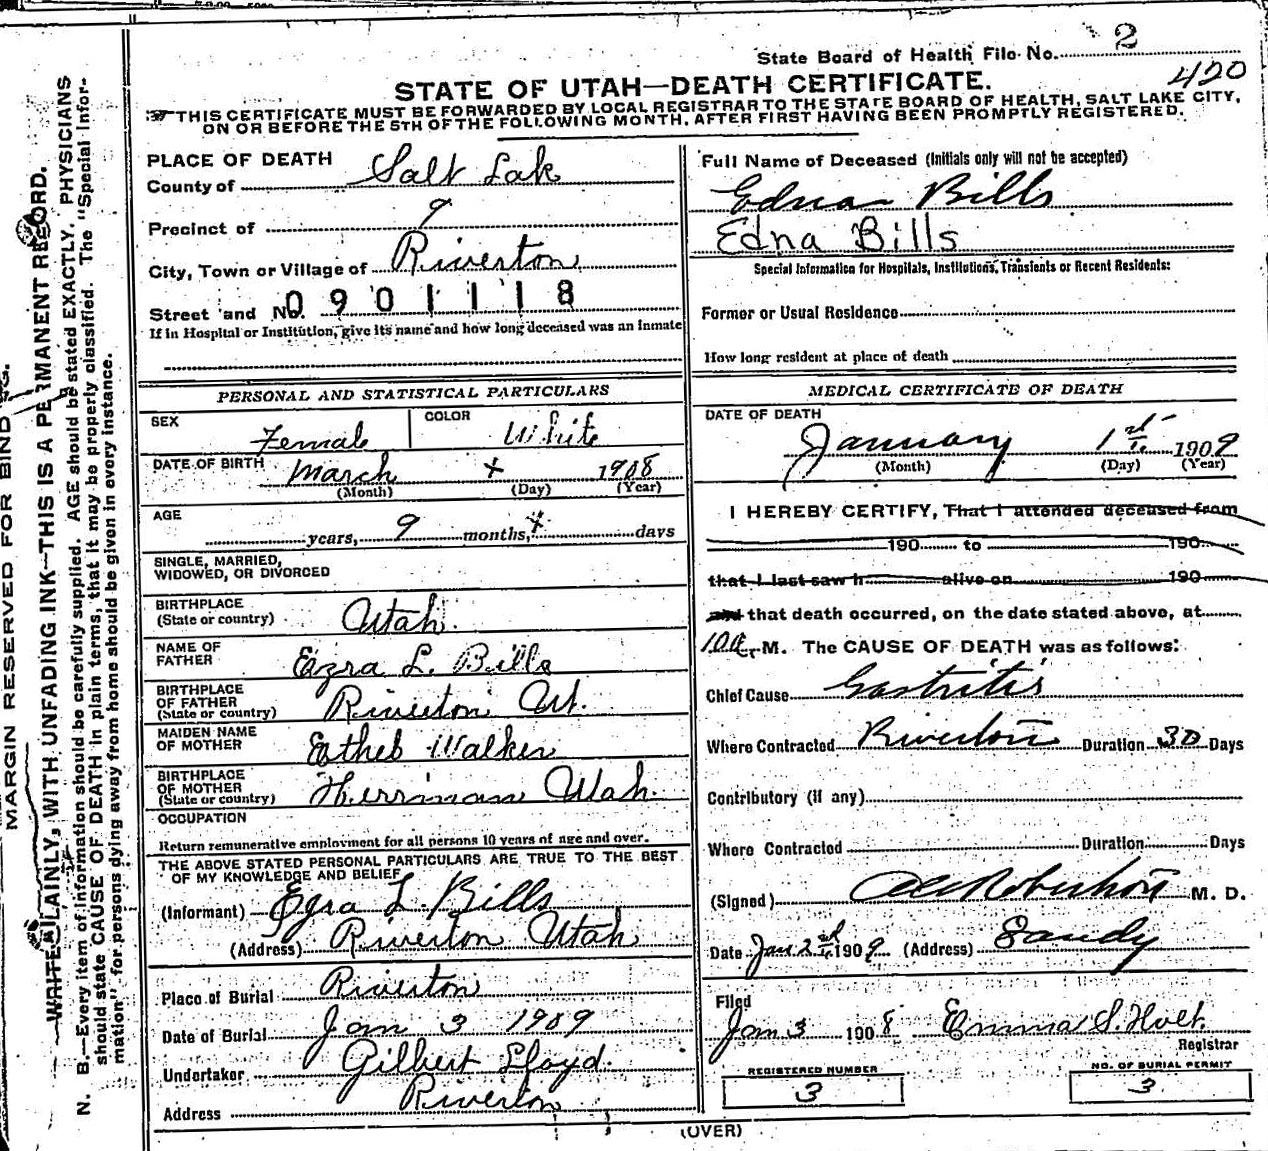 State Board of Health File No. 2
420
STATE OF UTAH—DEATH CERTIFICATE.
THIS CERTIFICATE MUST BE FORWARDED BY LOCAL REGISTRAR TO THE STATE BOARD OF HEALTH, SALT LAKE CITY,
ON OR BEFORE THE 5TH OF THE FOLLOWING MONTH, AFTER FIRST HAVING BEEN PROMPTLY REGISTERED.
PLACE OF DEATH
County of Salt Lak
Precinct of 9
City, Town or Village of Riverton
Street and No. 0901118
If in Hospital or Institution, give its name and how long deceased was an Inmate
PERSONAL AND STATISTICAL PARTICULARS
SEX Female COLOR White
DATE OF BIRTH March x 1908
(Month) (Day) (Year)
AGE years, 9 months, x days
SINGLE, MARRIED,
WIDOWED, OR DIVORCED
BIRTHPLACE
(State or country) Utah.
NAME OF
FATHER Ezra L. Bills
BIRTHPLACE
OF FATHER
(State or country) Riverton Ut.
MAIDEN NAME
OF MOTHER Walker
BIRTHPLACE
OF MOTHER
(State or country) Herriman Utah.
OCCUPATION
Return remunerative employment for all persons 10 years of age and over.
THE ABOVE STATED PERSONAL PARTICULARS ARE TRUE TO THE BEST
OF MY KNOWLEDGE AND BELIEF
(Informant) Ezra L. Bills
(Address) Riverton Utah
Place of Burial Riverton
Date of Burial Jan 3 1909
Undertaker Gilbert Lloyd.
Address Riverton
Full Name of Deceased (Initials only will not be accepted)
Edna Bills
Edna Bills
Special Information for Hospitals, Institutions, Transients or Recent Residents:
Former or Usual Residence
How long resident at place of death
MEDICAL CERTIFICATE OF DEATH
DATE OF DEATH
January 1st 1909
(Month) (Day) (Year)
I HEREBY CERTIFY, That I attended deceased from
190 to 190
that I last saw h alive on 190
and that death occurred, on the date stated above, at
M. The CAUSE OF DEATH was as follows:
Chief Cause Gastritis
Where Contracted Riverton Duration 30 Days
Contributory (if any)
Where Contracted Duration Days
(Signed) Robertson M. D.
Date Jan 2nd 1909 (Address) Sandy
Filed
Jan 3 1908 Emma S. Holt.
Registrar
REGISTERED NUMBER
3
NO. OF BURIAL PERMIT
3
(OVER)
MARGIN RESERVED FOR BINDING.
WRITE PLAINLY, WITH UNFADING INK—THIS IS A PERMANENT RECORD.
N. B.—Every item of information should be carefully supplied. AGE should be stated EXACTLY. PHYSICIANS
should state CAUSE OF DEATH in plain terms, that it may be properly classified. The "Special Infor-
mation" for persons dying away from home should be given in every instance.